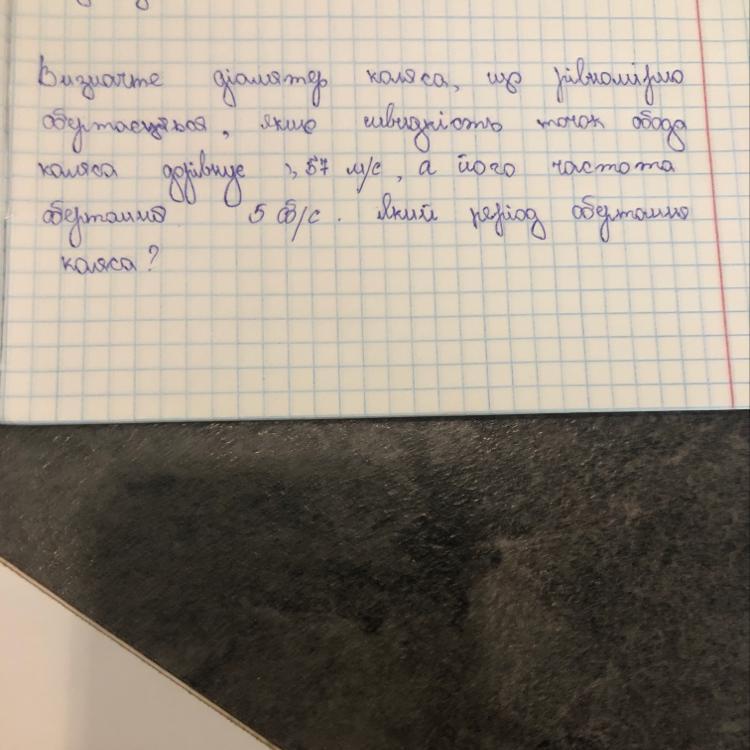 Визначте діаметер колеса, що рівномірно
обертається, якщо швидкість точок обода
колеса дорівнює 1,57 м/с, а його частота
обертання 5 об/с. який період обертання
колеса?